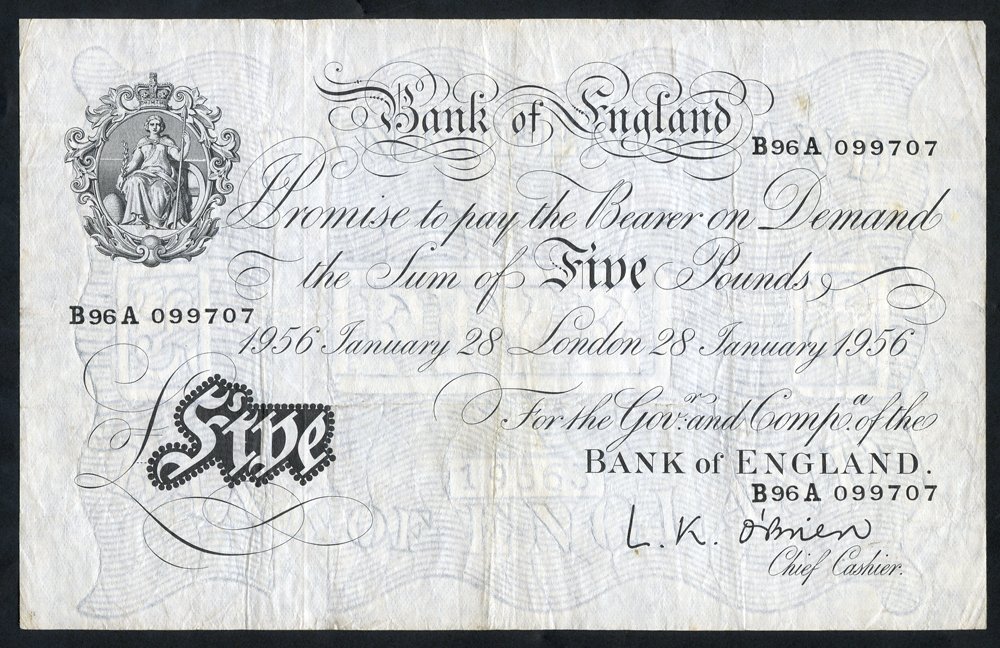 Bank of England
B96A 099707
I Promise to pay the Bearer on Demand
the Sum of Five Pounds
B96A 099707
1956 January 28 London 28 January 1956
£Five
For the Govr. and Compa. of the
BANK of ENGLAND.
B96A 099707
L. K. O'Brien
Chief Cashier.